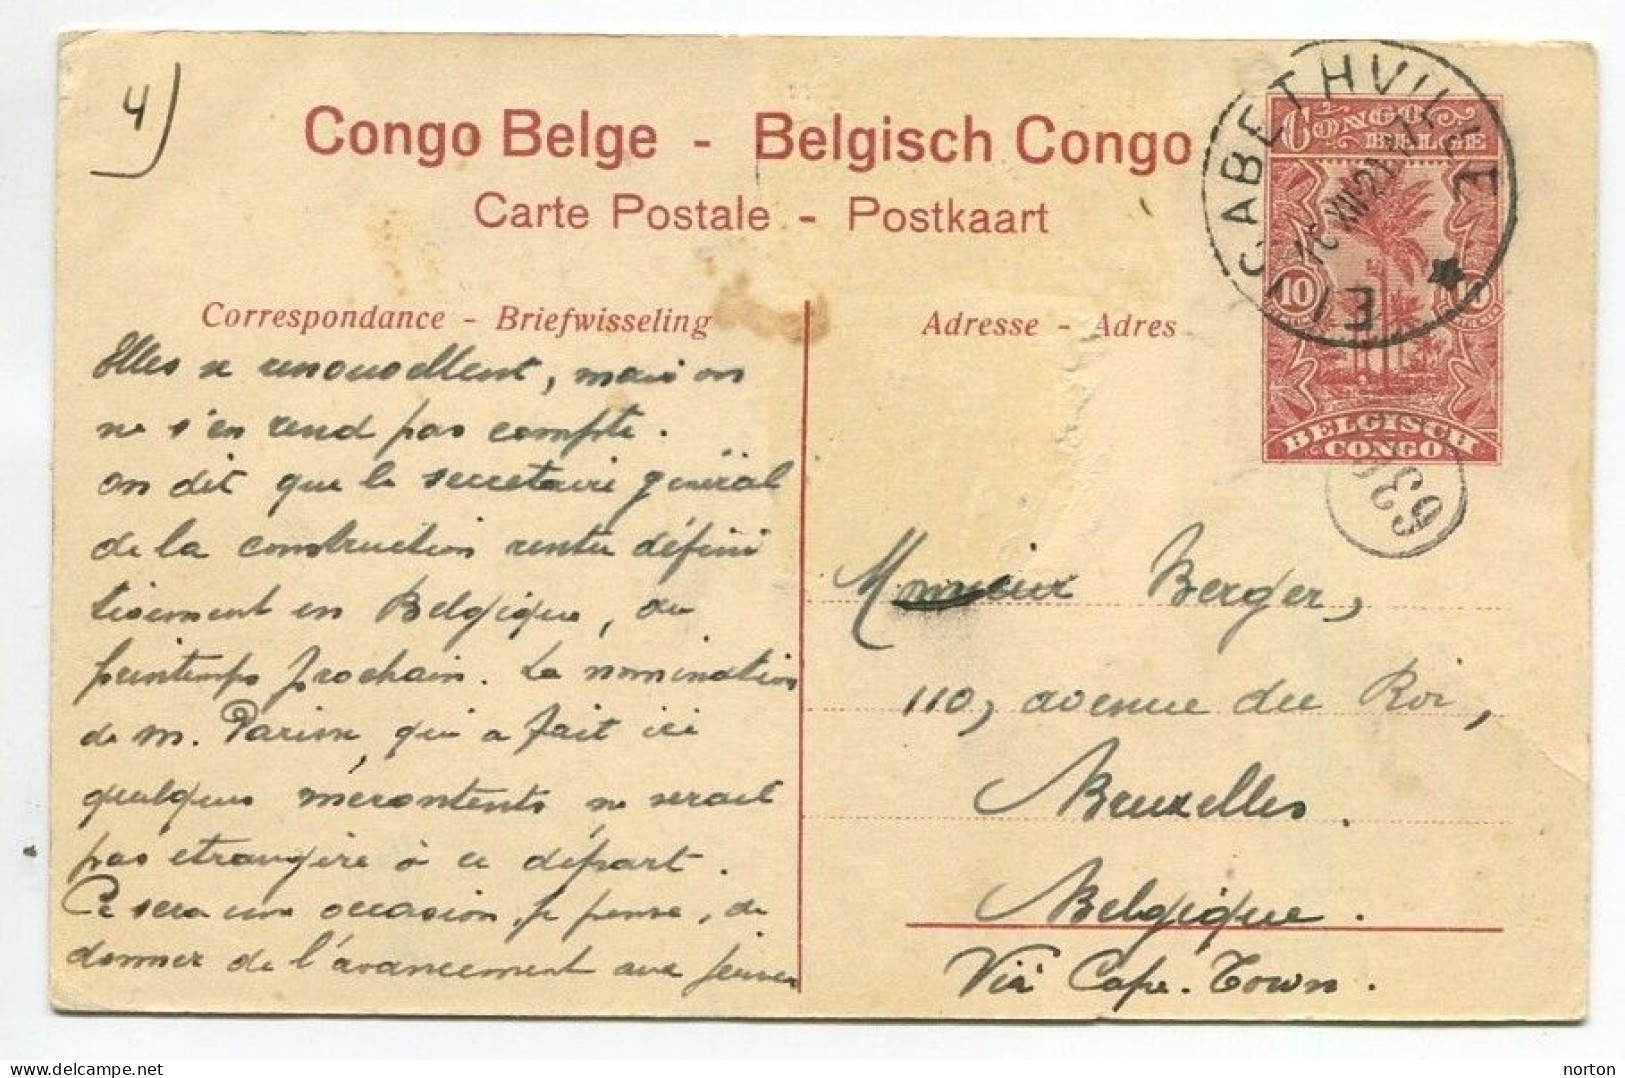 4)
Congo Belge - Belgisch Congo
Carte Postale - Postkaart
CONGO
BELGE
10
10
BELGISCH
CONGO
ELISABETHVILLE
Correspondance - Briefwisseling
Elles se renouvellent, mais on
ne s'en rend pas compte.
on dit que le secretaire général
de la construction rentre défini
tivement en Belgique, au
printemps prochain. La nomination
de m. Parim, qui a fait ici
quelques mécontents ne serait
pas etrangère à ce départ.
Ce sera une occasion, je pense, de
donner de l'avancement aux jeunes
Adresse - Adres
Monsieur Berger,
110, avenue du Roi,
Bruxelles.
Belgique.
Via Cape-Town.
norton